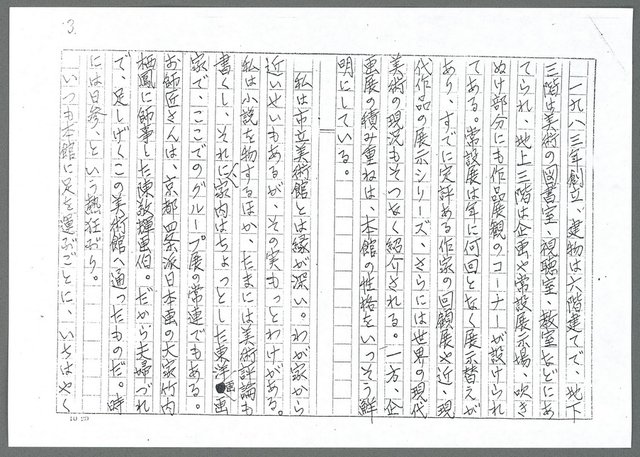 3.
一九八三年創立、建物は六階建てで、地下
三階は美術の図書室、視聴室、教室などにあ
てられ、地上三階は企画や常設展示場、吹き
ぬけ部分にも作品展観のコーナーが設けられ
てある。常設展は年に何回となく展示替えが
あり、すでに定評ある作家の回顧展や近・現
代作品の展示シリーズ、さらには世界の現代
美術の現況もそつなく紹介される。一方、企
画展の積み重ねは、本館の性格をいっそう鮮
明にしている。
私は市立美術館とは縁が深い。わが家から
近いせいもあるが、その実もっとわけがある。
私は小説を物するほか、たまには美術評論も
書くし、それに家内はちょっとした東洋画
家で、ここでのグループ展の常連でもある。
お師匠さんは、京都四条派日本画の大家竹内
栖鳳に師事した陳敬輝画伯。だから夫婦づれ
で、足しげくこの美術館へ通ったものだ。時
には日参、という熱狂ぶり。
いつも本館に足を運ぶごとに、いちはやく